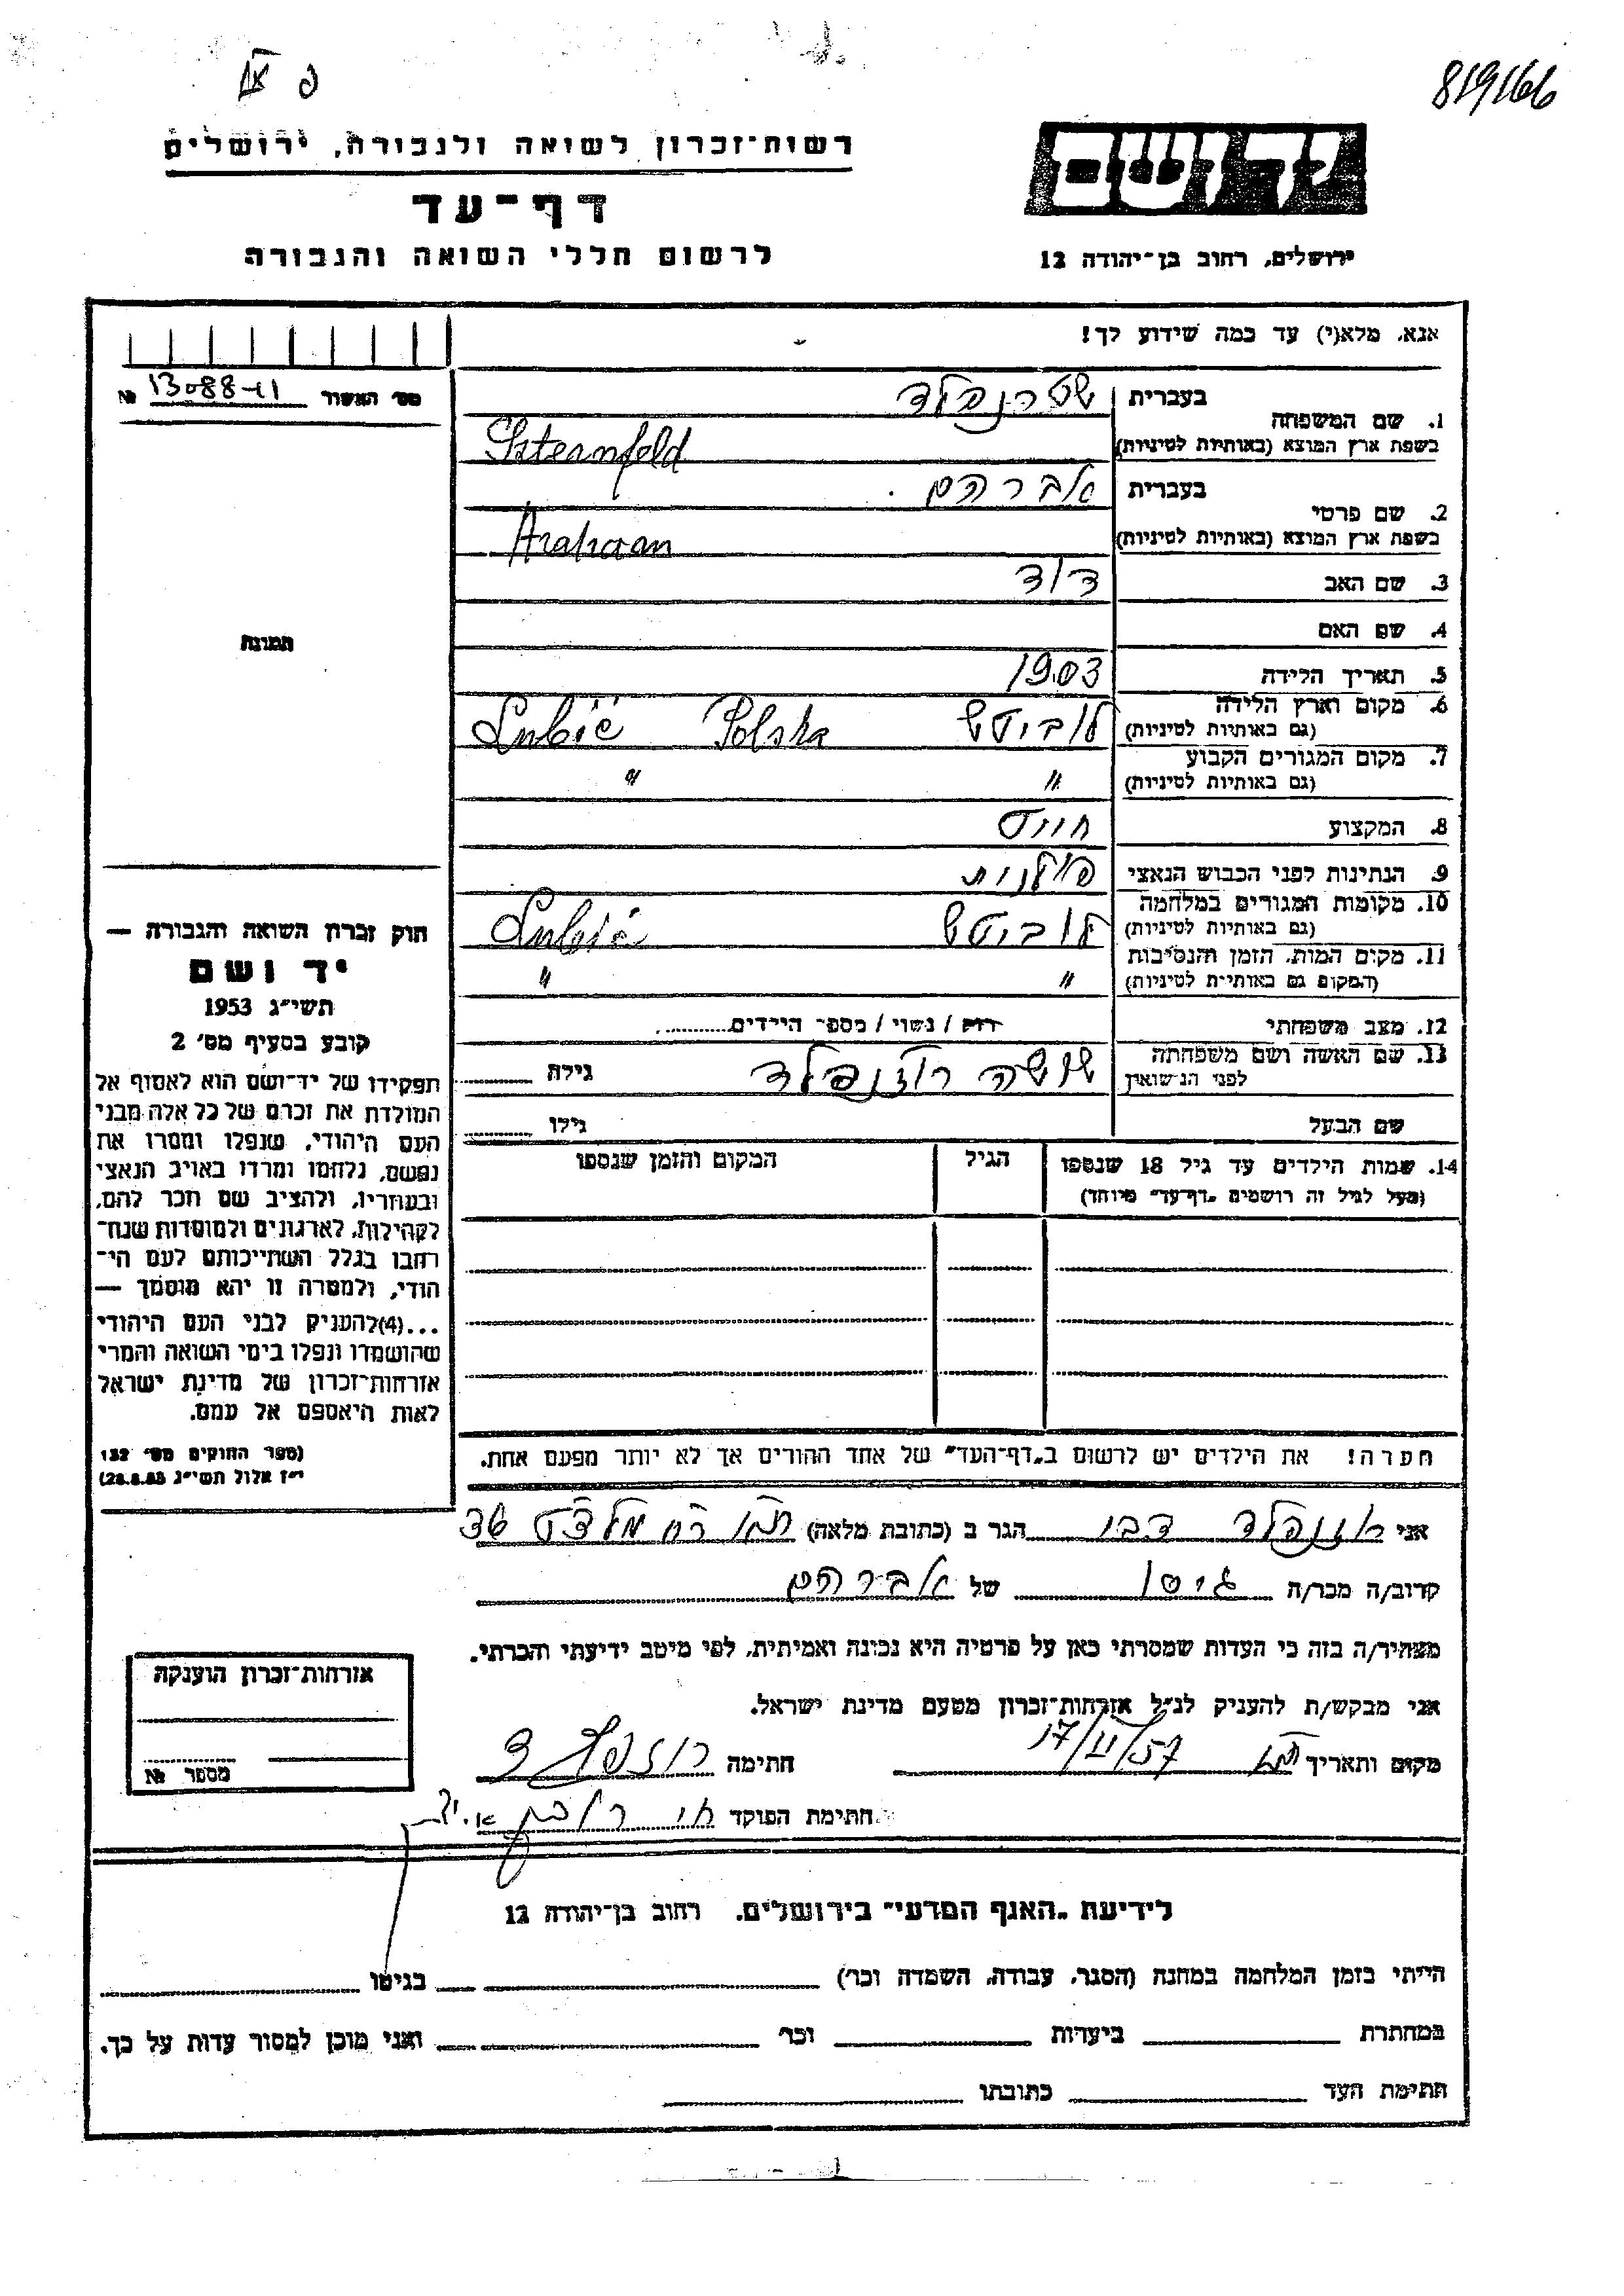 819166
רשות־זכרון לשואה ולגבורה, ירושלים
דף־עד
לרשום חללי השואה והגבורה
יד ושם
ירושלים, רחוב בן־יהודה 12
אנא, מלא(י) עד כמה שידוע לך!
מס׳ האשור 13088-41 №
1. שם המשפחה
בעברית שטרנפלד
בשפת ארץ המוצא (באותיות לטיניות) Szternfeld
2. שם פרטי
בעברית אברהם
בשפת ארץ המוצא (באותיות לטיניות)
3. שם האב דוד
4. שם האם
5. תאריך הלידה 1903
6. מקום וארץ הלידה (גם באותיות לטיניות) לוביטש Polska Lubič
7. מקום המגורים הקבוע (גם באותיות לטיניות) " "
8. המקצוע חייט
9. הנתינות לפני הכבוש הנאצי פולנית
10. מקומות המגורים במלחמה (גם באותיות לטיניות) לוביטש Lubič
11. מקום המות, הזמן והנסיבות (המקום גם באותיות לטיניות) " "
12. מצב משפחתי רוק / נשוי / מספר הילדים
13. שם האשה ושם משפחתה לפני הנשואין שושה רוזנפלד גילה
שם הבעל גילו
14. שמות הילדים עד גיל 18 שנספו הגיל המקום והזמן שנספו
(מעל לגיל זה רושמים „דף־עד״ מיוחד)
תמונה
חוק זכרון השואה והגבורה —
יד ושם
תשי״ג 1953
קובע בסעיף מס׳ 2
תפקידו של יד־ושם הוא לאסוף אל
המולדת את זכרם של כל אלה מבני
העם היהודי, שנפלו ומסרו את
נפשם, נלחמו ומרדו באויב הנאצי
ובעוזריו, ולהציב שם וזכר להם,
לקהילות, לארגונים ולמוסדות שנח־
רבו בגלל השתייכותם לעם הי־
הודי, ולמטרה זו יהא מוסמך —
...(4)להעניק לבני העם היהודי
שהושמדו ונפלו בימי השואה והמרי
אזרחות־זכרון של מדינת ישראל
לאות היאספם אל עמם.
(ספר החוקים מס׳ 132
י״ז אלול תשי״ג 28.8.53)
הערה! את הילדים יש לרשום ב„דף־העד״ של אחד ההורים אך לא יותר מפעם אחת.
אני רוזנפלד הגר ב (כתובת מלאה)
קרוב/ה מכר/ה גיסו של אברהם
מצהיר/ה בזה כי העדות שמסרתי כאן על פרטיה היא נכונה ואמיתית, לפי מיטב ידיעתי והכרתי.
אני מבקש/ת להעניק לנ״ל אזרחות־זכרון מטעם מדינת ישראל.
מקום ותאריך 17/II/57 חתימה
חתימת הפוקד
אזרחות־זכרון הוענקה
מספר №
לידיעת „האגף המדעי״ בירושלים. רחוב בן־יהודה 12
הייתי בזמן המלחמה במחנה (הסגר, עבודה, השמדה וכר׳) בגיטו
במחתרת ביערות וכר׳ ואני מוכן למסור עדות על כך.
חתימת העד כתובתו